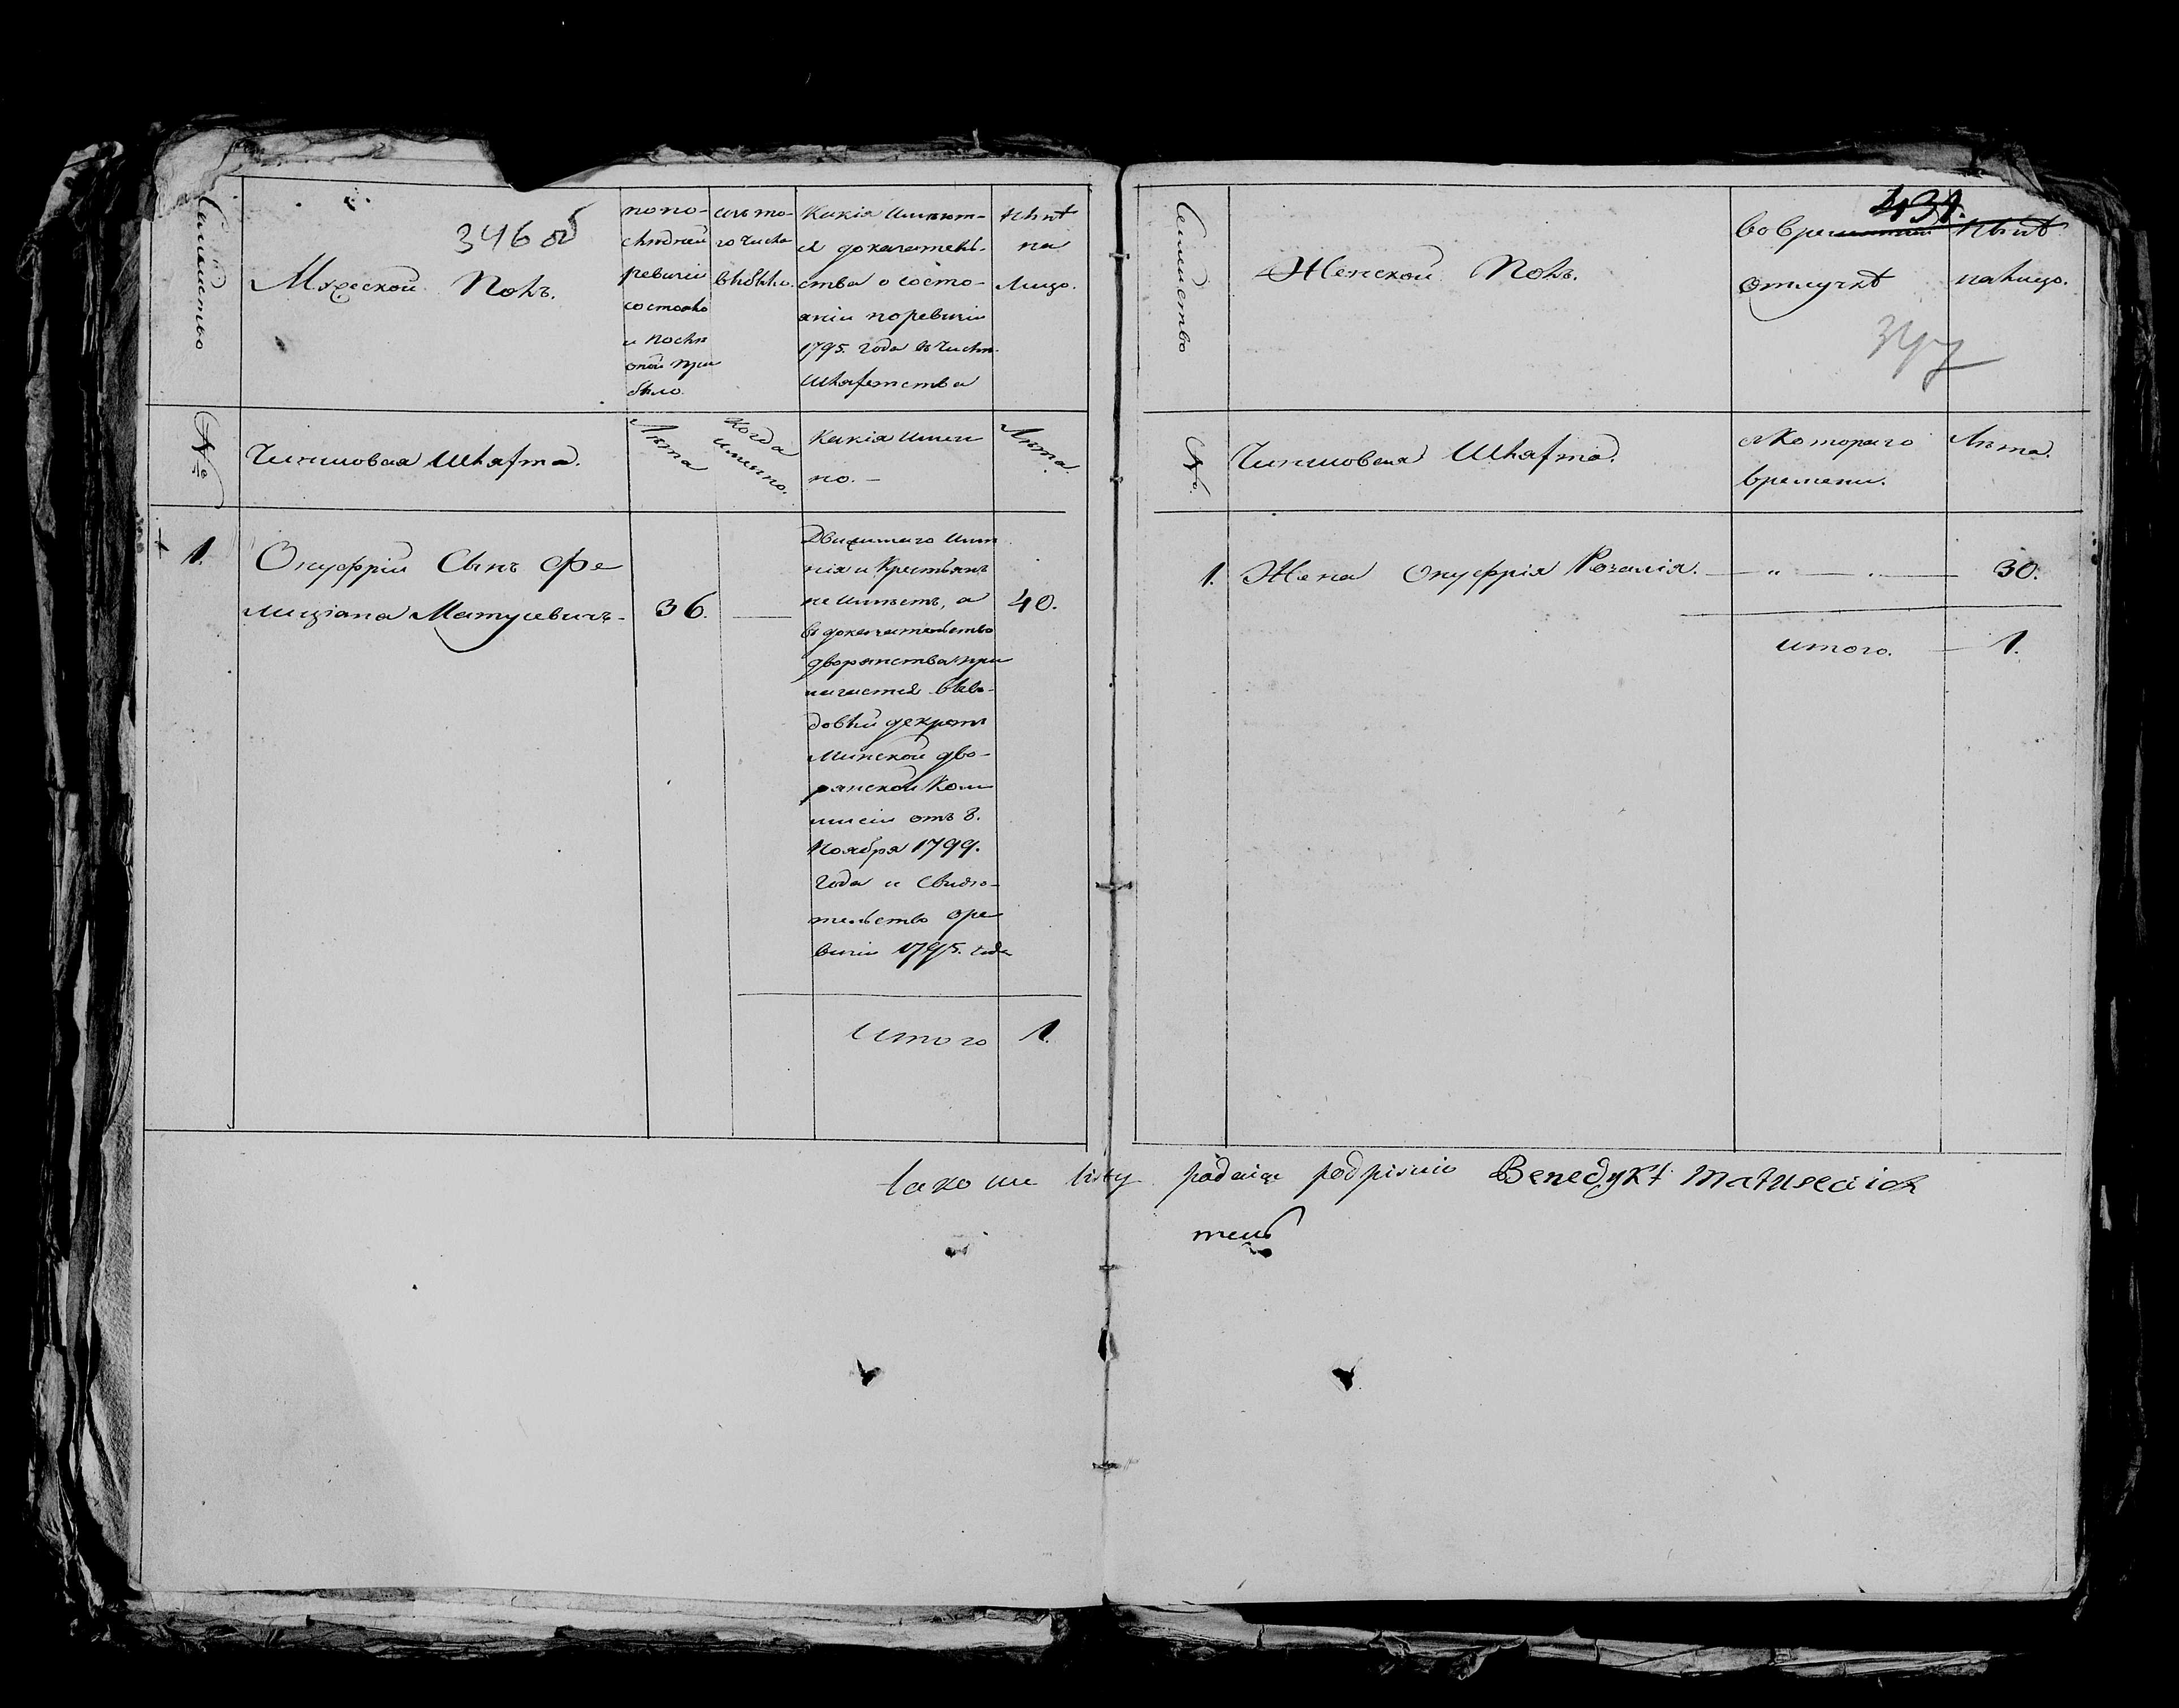 346 об
Семейство
Мужеской Полъ.
по по-
следней
ревизiи
состояло
и после
оной при
было
изъ то-
го числа
выбыло.
Какiя имеют-
ся доказатель-
ства о состо-
янiи по ревизiи
1795. Года въ числе
Шляхетства
Ныне
на
лицо.
№
Чиншовая Шляхта.
Лета
когда
именно.
Какiя имен
но. –
Лета
1.
Онуфрiй Сынъ Фе
лицiана Матусевичъ. 36. — 40.
Движимаго име
нiя и Крестьянъ
не имеетъ, а
въ доказательство
дворянства при
лагается выво-
довый декретъ
Минской дво-
рянской Ком
мисiи отъ 8.
Ноября 1799.
года и свиде-
тельство о ре
визiи 1795. года
Итого 1.
431.
Семейство
Женской Полъ.
во временной
отлучке
Ныне
на лицо.
347
№.
Чиншовая Шляхта.
съ Котораго
времени.
Лета.
1. Жена Онуфрiя Розалiя. — " — " — 30.
итого. — 1.
listy podaiąc podpisuie Benedykt Matusewicz